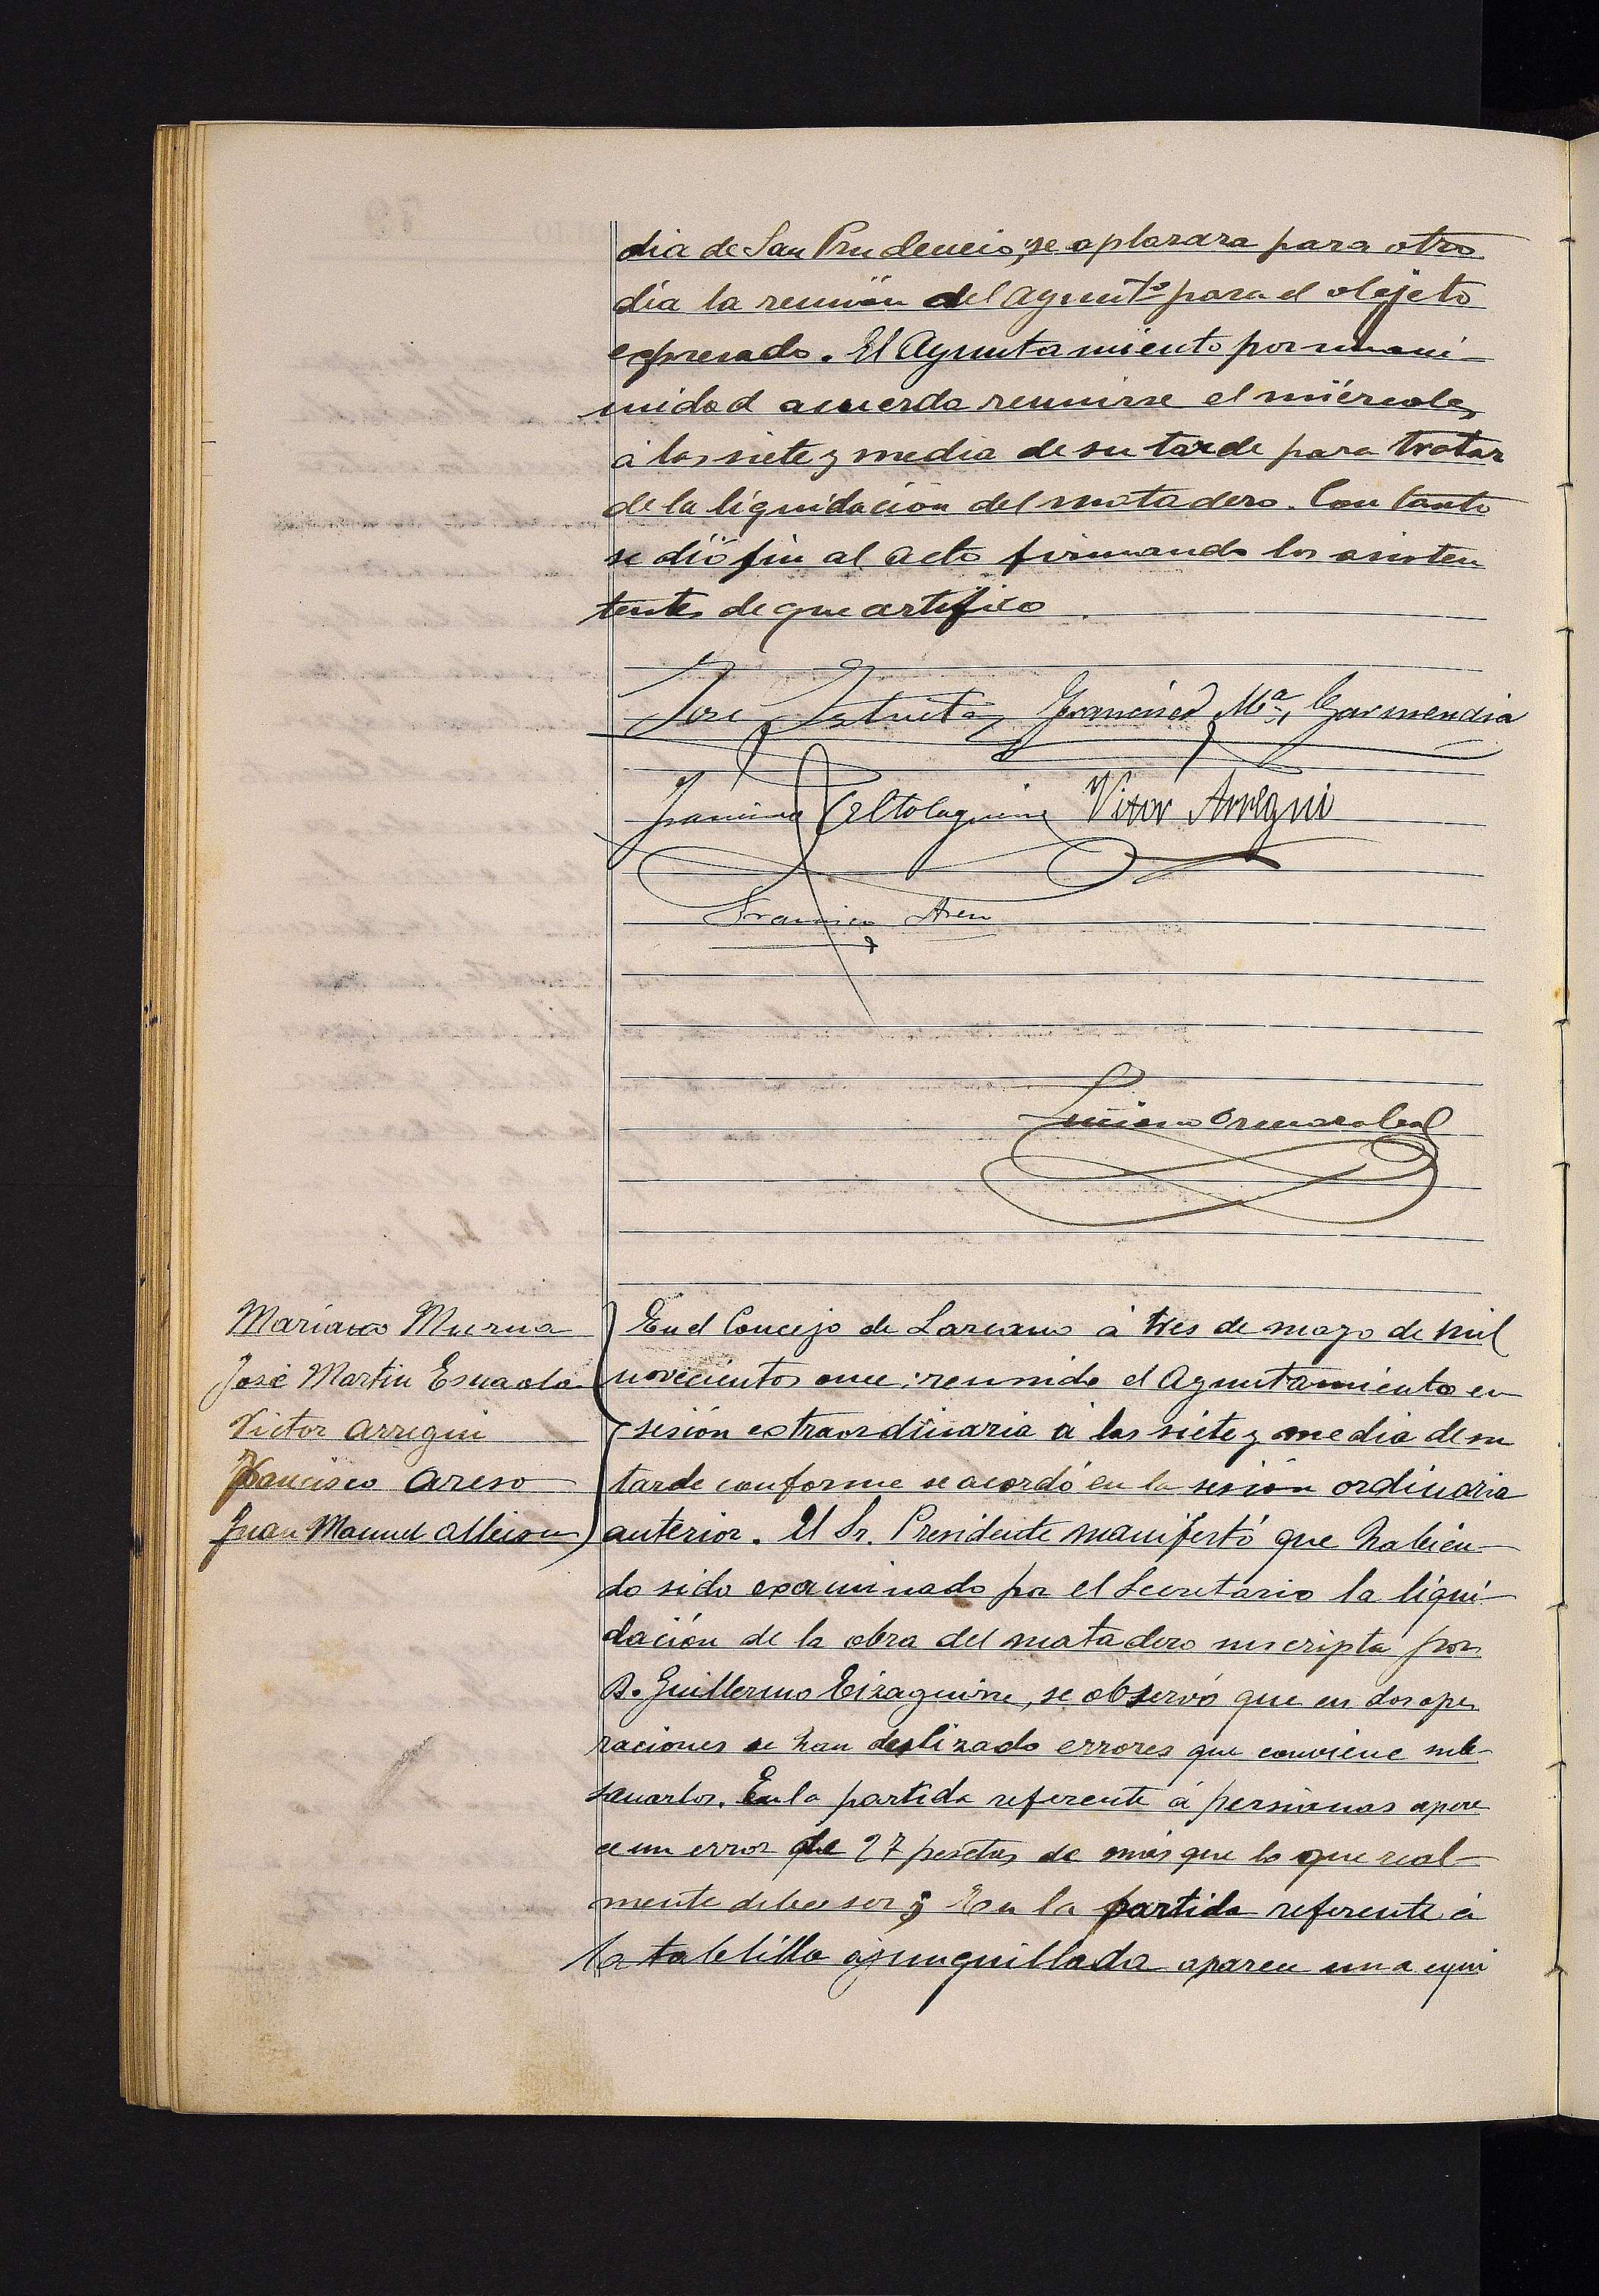 dia de San Prudencio, se aplazara para otro
día la reunión del Ayunt.º para el objeto
expresado. El Ayuntamiento por unani-
midad acuerda reunirse el miércoles
á las siete y media de su tarde para tratar
de la liquidación del matadero. Con tanto
se dió fin al acto firmando los asisten
tentes de que certifico
José Francisco Mª Garmendia
Francisco Altolaguirre Vitor Arregui
Francisco
Luciano
Mariano Murua
José Martin Esnaola
Victor Arregui
Francisco Areso
Juan Manuel Albisu
En el Concejo de Lazcano á tres de mayo de mil
novecientos once: reunido el Ayuntamiento en
sesión extraordinaria á las siete y media de su
tarde conforme se acordó en la sesión ordinaria
anterior. El Sr. Presidente manifestó que habien-
do sido examinado por el Secretario la liqui-
dación de la obra del matadero suscripta por
D. Guillermo Eizaguirre, se observó que en dos ope
raciones se han deslizado errores que conviene sub-
sanarlos. En la partida referente á persianas apare
ce un error de 27 pesetas de más que lo que real-
mente debe ser y En la partida referente á
la tablilla ajunquillada aparece una equi